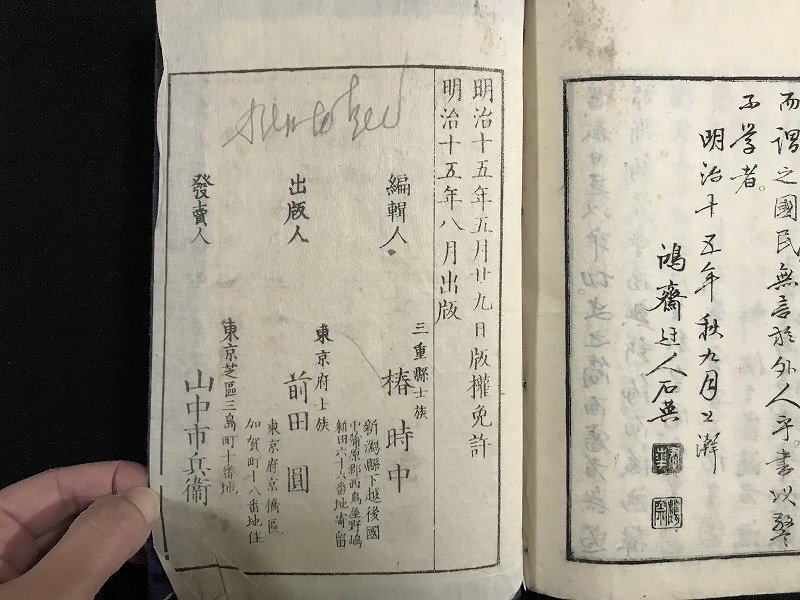 而謂之國民無言於外人乎書以警
不學者
明治十五年秋九月上澣
鴻齋迂人石英
明治十五年五月廿九日版權免許
明治十五年八月出版
編輯人
三重縣士族
椿時中
新潟縣下越後國
中蒲原郡西島屋野嶋
新田六十六番地寄留
出版人
東京府士族
前田圓
東京府京橋區
加賀町十八番地住
發賣人
東京芝區三島町十番地
山中市兵衛